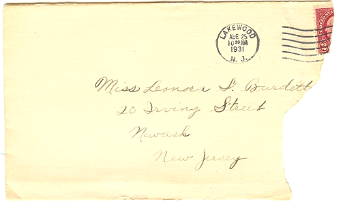 LAKEWOOD
AUG 25
1931
N. J.
Miss Leonor F. Burdett
20 Irving Street
Newark
New Jersey